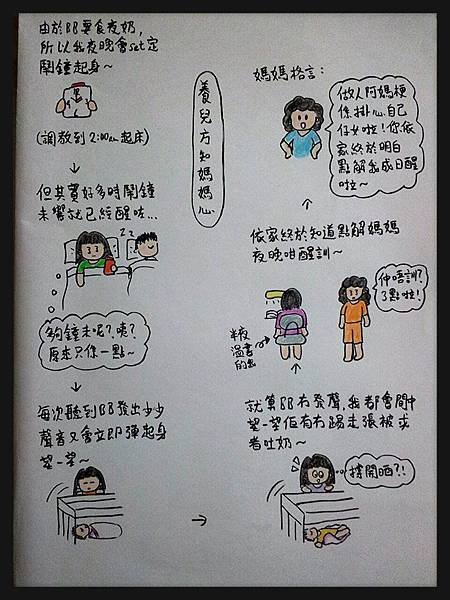 養兒方知媽媽心
由於BB要食夜奶,
所以我夜晚會set定
鬧鐘起身~
(調教到2:00am起床)
但其實好多時鬧鐘
未響就已經醒咗...
zz
夠鐘未呢?咦?
原來只係一點~
每次聽到BB發出少少
聲音又會立即彈起身
望一望~
就算BB冇發聲,我都會間中
望一望佢有冇踢走張被或
者吐奶~
開晒?!
依家終於知道點解媽媽
夜晚咁醒訓~
半夜
溫書
的我
仲唔訓?
3點啦!
媽媽格言:
做人阿媽梗
係掛心自己
仔女啦!你依
家終於明白
點解我成日醒
啦~